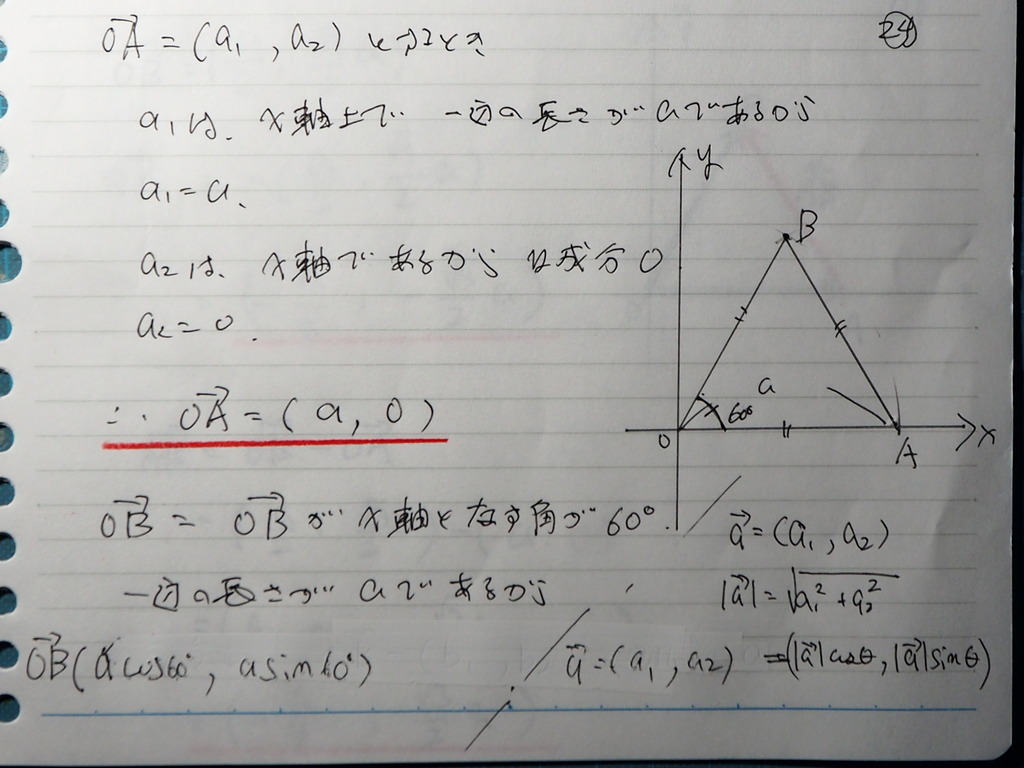 24
OA→ = (a₁ , a₂) とするとき
a₁は、x軸上で 一辺の長さが aであるから
a₁ = a、
a₂は、x軸であるから y成分 0
a₂ = 0 .
∴ OA→ = ( a , 0 )
y
B
a
60°
O
A
x
OB→ = OB→ が x軸となす角が 60° .
一辺の長さが aであるから
OB→(a cos60° , a sin60°)
a→ = (a₁ , a₂)
|a→| = √a₁² + a₂²
a→ = (a₁ , a₂) = (|a→| cosθ , |a→| sinθ)